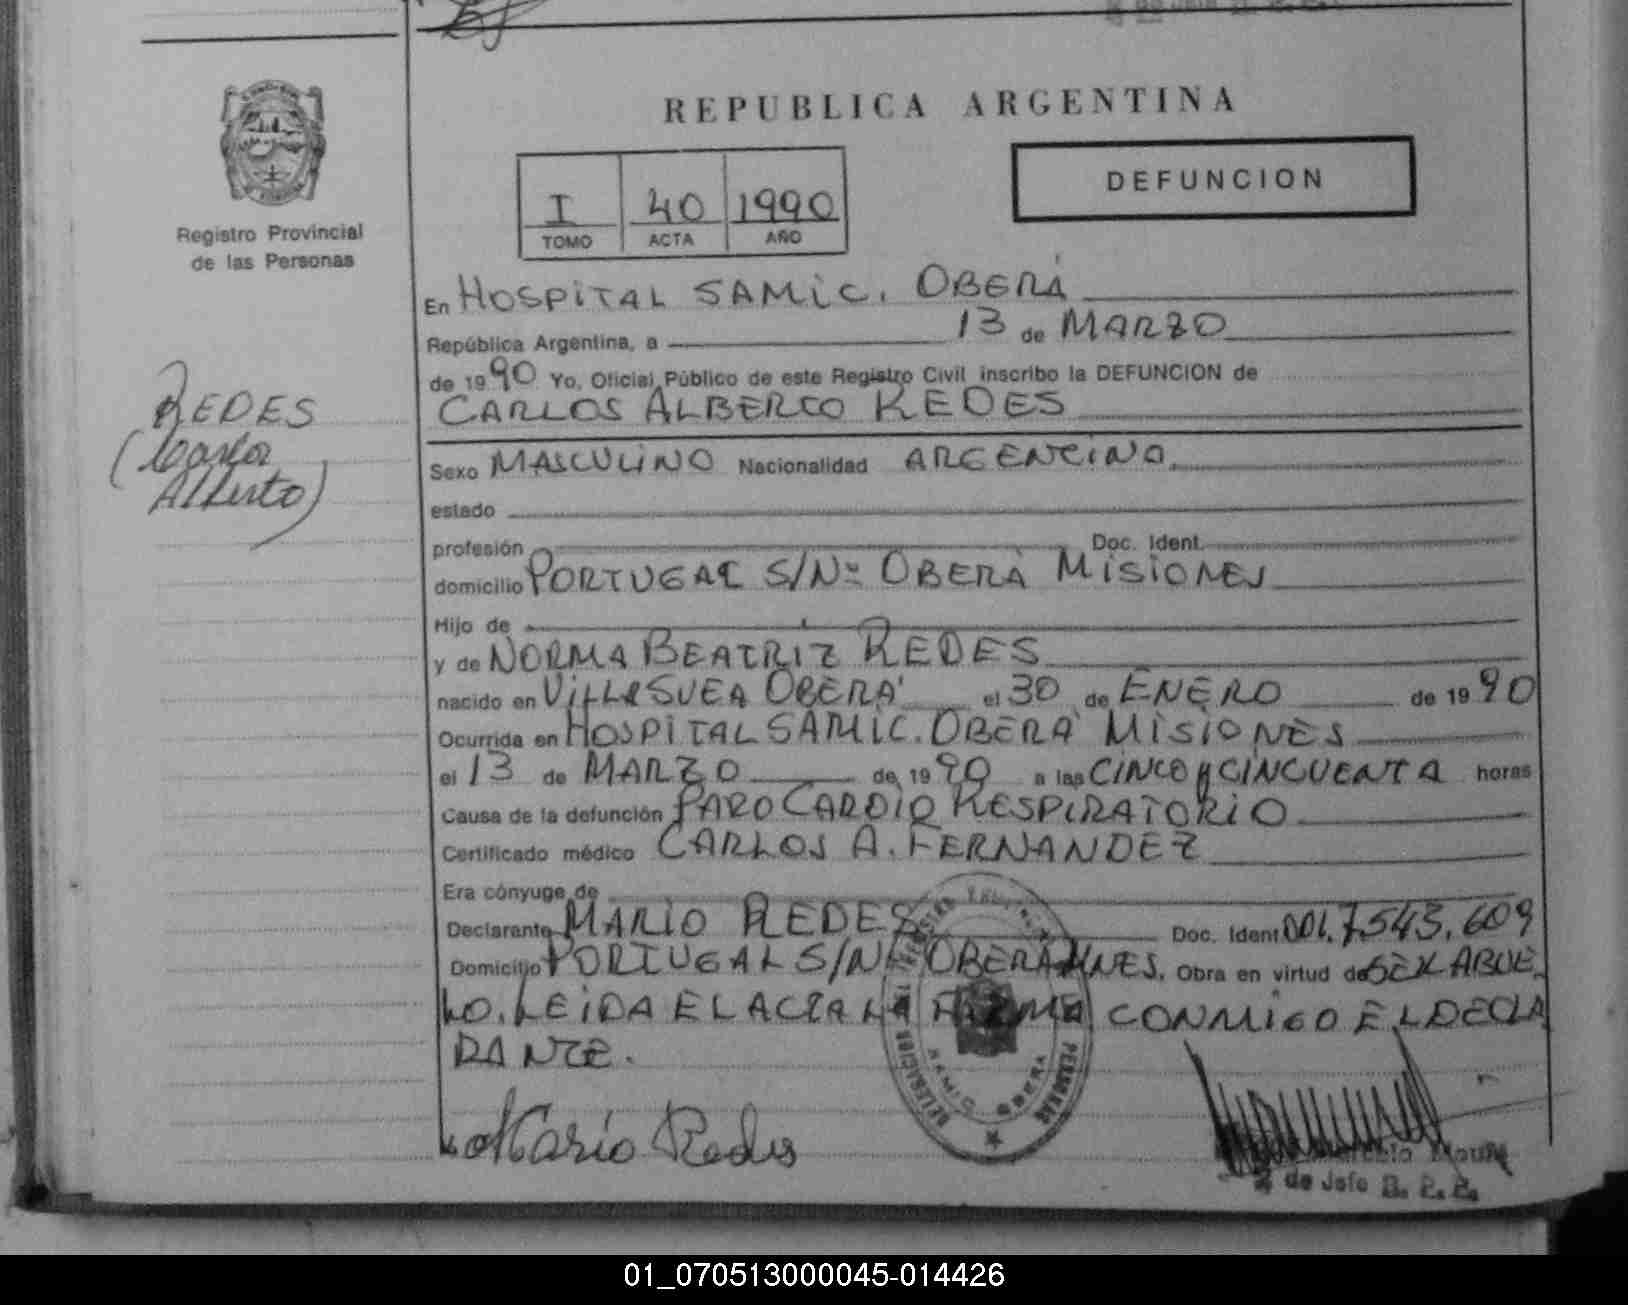 REPUBLICA ARGENTINA
I 40 1990
TOMO ACTA AÑO
DEFUNCION
Registro Provincial
de las Personas
REDES
(Carlos
Alberto)
En HOSPITAL SAMIC. OBERÁ
República Argentina, a 13 de MARZO
de 1990 Yo, Oficial Público de este Registro Civil inscribo la DEFUNCION de
CARLOS ALBERTO REDES
Sexo MASCULINO Nacionalidad ARGENTINO
estado
profesión Doc. Ident.
domicilio PORTUGAL S/Nº OBERÁ MISIONES
Hijo de
y de NORMA BEATRIZ REDES
nacido en VILLA SVEA OBERÁ el 30 de ENERO de 1990
Ocurrida en HOSPITAL SAMIC. OBERÁ MISIONES
el 13 de MARZO de 1990 a las CINCO y CINCUENTA horas
Causa de la defunción PARO CARDIO RESPIRATORIO
Certificado médico CARLOS A. FERNANDEZ
Era cónyuge de
Declarante MARIO REDES Doc. Ident. 7.543.609
Domicilio PORTUGAL S/Nº OBERÁ MNES. Obra en virtud de SER ABUE
LO. LEIDA EL ACTA LA FIRMA CONMIGO EL DECLA
RANTE.
Mario Redes
de Jefe R. P. P.
01_070513000045-014426